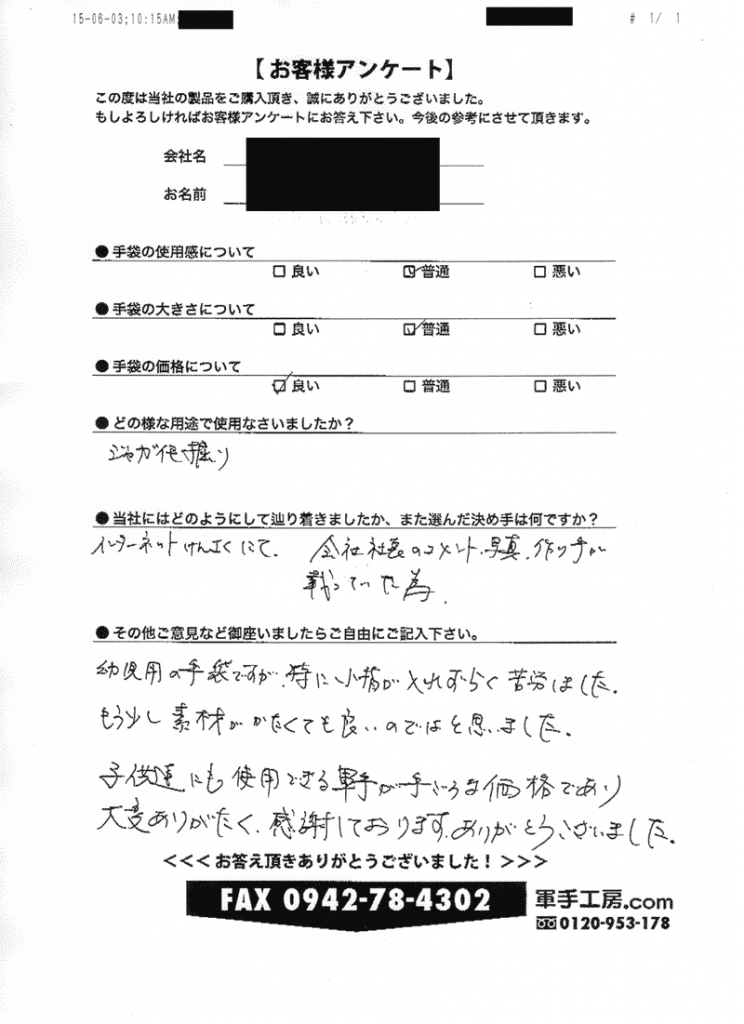 15-06-03;10:15AM;
# 1/ 1
【お客様アンケート】
この度は当社の製品をご購入頂き、誠にありがとうございました。
もしよろしければお客様アンケートにお答え下さい。今後の参考にさせて頂きます。
会社名
お名前
●手袋の使用感について
□良い ☑普通 □悪い
●手袋の大きさについて
□良い ☑普通 □悪い
●手袋の価格について
☑良い □普通 □悪い
●どの様な用途で使用なさいましたか？
ジャガイモ掘り
●当社にはどのようにして辿り着きましたか、また選んだ決め手は何ですか？
インターネットけんさくにて. 会社社長のコメント.写真.作り手が
載っていた為.
●その他ご意見など御座いましたらご自由にご記入下さい。
幼児用の手袋ですが、特に小指が入れずらく苦労しました.
もう少し素材がかたくても良いのではと思いました.
子供達にも使用できる軍手が手ごろな価格であり
大変ありがたく、感謝しております。ありがとうございました.
<<<お答え頂きありがとうございました！>>>
FAX 0942-78-4302
軍手工房.com
0120-953-178